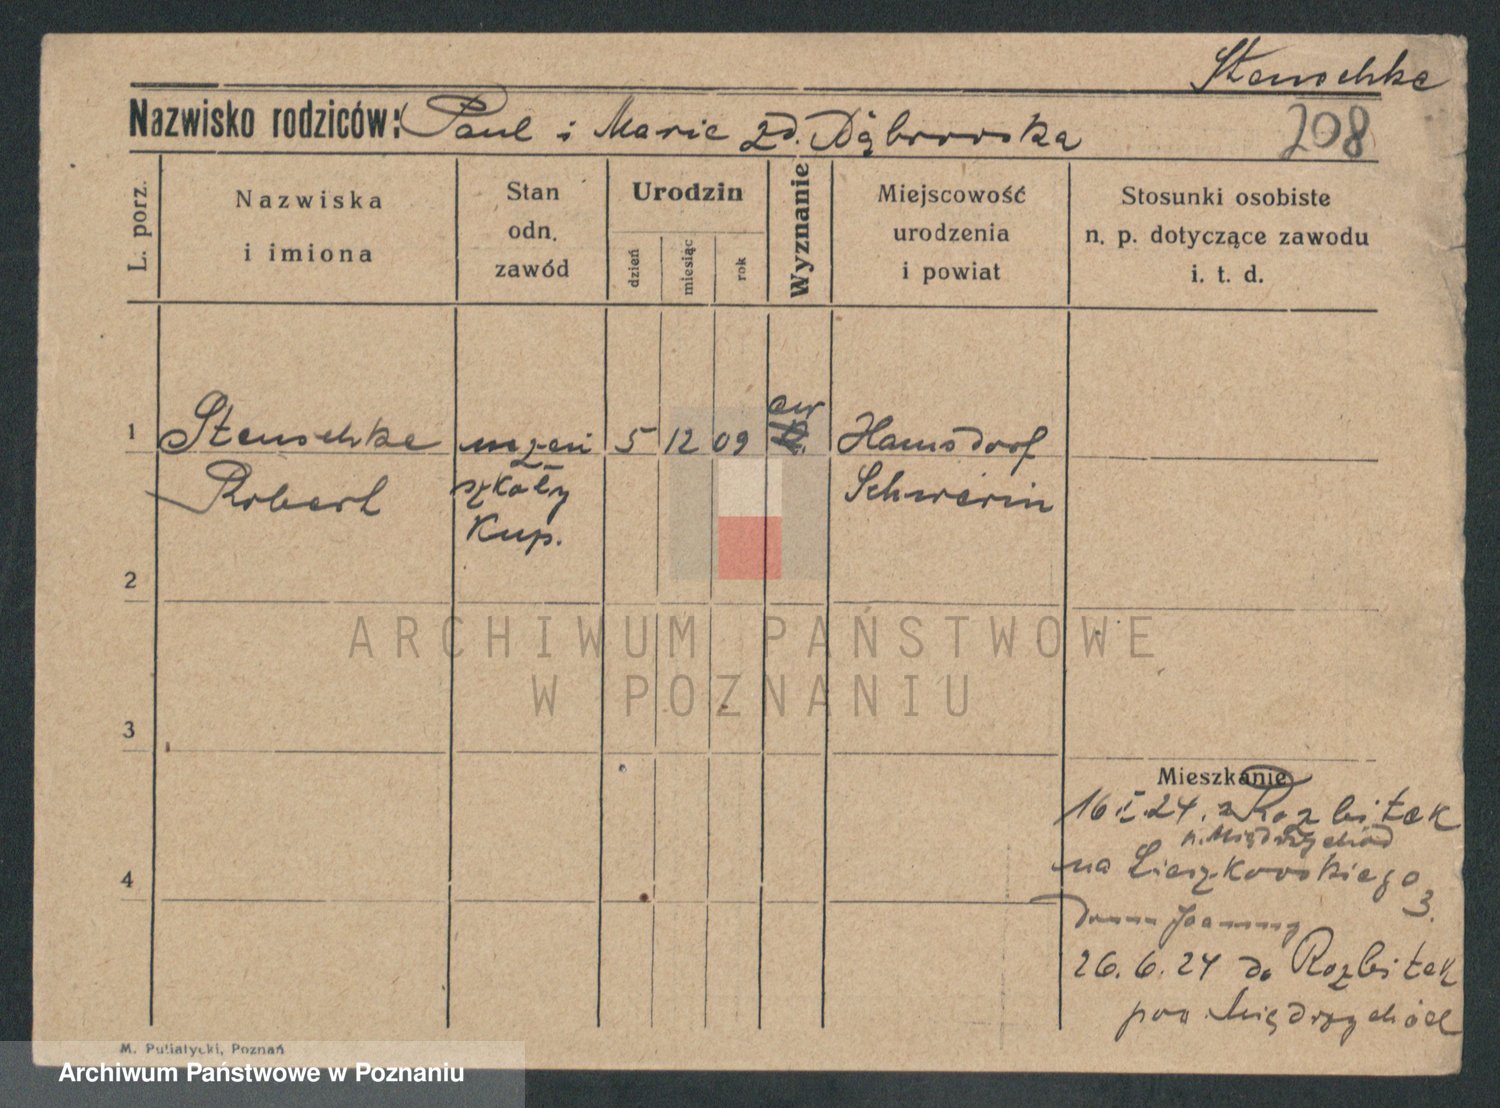 Stenschke
Nazwisko rodziców: Paul i Marie zd. Dąbrowska
208
L. porz.
Nazwiska
i imiona
Stan
odn.
zawód
Urodzin
dzień
miesiąc
rok
Wyznanie
Miejscowość
urodzenia
i powiat
Stosunki osobiste
n. p. dotyczące zawodu
i. t. d.
1
Stenschke
Robert
uczeń
szkoły
Kup.
5
12
09
ew
Schwerin
2
3
4
Mieszkanie
16 I 24. z Rozbitek
p. Międzychód
na
3.
26. 6. 24 do Rozbitek
pow. Międzychód
M. Putiatycki, Poznań
ARCHIWUM PAŃSTWOWE
W POZNANIU
Archiwum Państwowe w Poznaniu